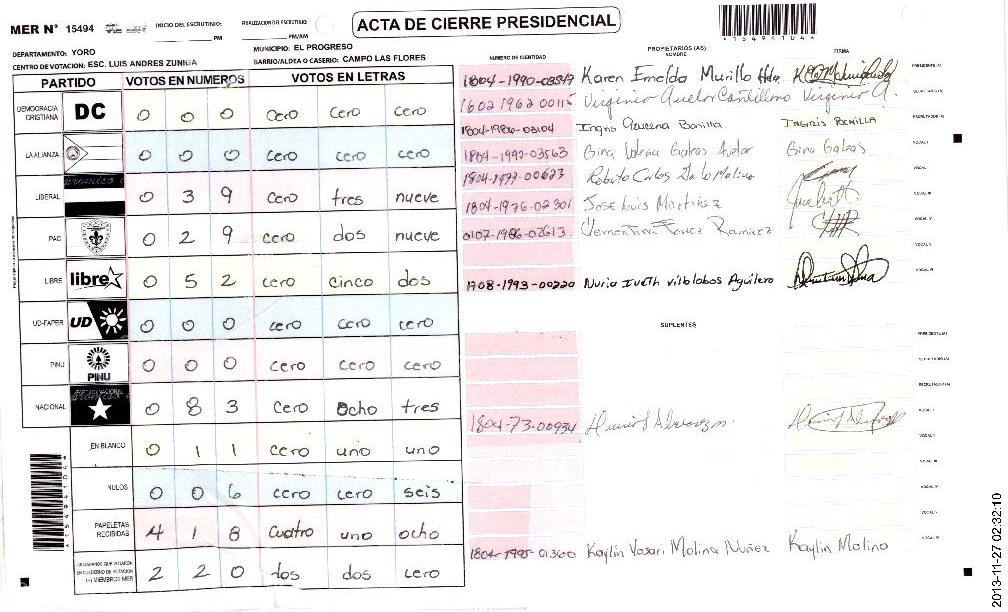 MER N° 15494 INICIO DEL ESCRUTINIO: PM FINALIZACION DEL ESCRUTINIO: PM/AM
ACTA DE CIERRE PRESIDENCIAL
DEPARTAMENTO: YORO MUNICIPIO: EL PROGRESO
CENTRO DE VOTACION: ESC. LUIS ANDRES ZUNIGA BARRIO/ALDEA O CASERIO: CAMPO LAS FLORES
PARTIDO VOTOS EN NUMEROS VOTOS EN LETRAS
DEMOCRACIA CRISTIANA DC 0 0 0 cero cero cero
LA ALIANZA 0 0 0 cero cero cero
LIBERAL 0 3 9 cero tres nueve
PAC 0 2 9 cero dos nueve
LIBRE libre 0 5 2 cero cinco dos
UD-FAPER UD 0 0 0 cero cero cero
PINU PINU 0 0 0 cero cero cero
NACIONAL 0 8 3 cero ocho tres
EN BLANCO 0 1 1 cero uno uno
NULOS 0 0 6 cero cero seis
PAPELETAS RECIBIDAS 4 1 8 cuatro uno ocho
CIUDADANOS QUE VOTARON EN CUADERNO DE VOTACION (+) MIEMBROS MER 2 2 0 dos dos cero
NUMERO DE IDENTIDAD PROPIETARIOS (AS) NOMBRE FIRMA
Karen Murillo PRESIDENTE (A)
1602 1962 00115 Virginia Virginia A. SECRETARIO (A)
1804-1986-03104 Ingris Bonilla INGRIS BONILLA ESCRUTADOR (A)
1804-1992-03563 Gina Galeas Gina Galeas VOCAL I
1804-1977-00623 Roberto Carlos Molina
1804-1976-02301 Jose Luis Martinez VOCAL III
0107-1986-02613 Ramirez VOCAL IV
VOCAL V
1708-1993-00220 Nuria Aguilera VOCAL VI
SUPLENTES
PRESIDENTE (A)
SECRETARIO (A)
ESCRUTADOR (A)
1804-73-00934 VOCAL I
VOCAL V
1804-1995-01300 Kaylin Molina Nuñez Kaylin Molina
15494104
2013-11-27 02:32:10